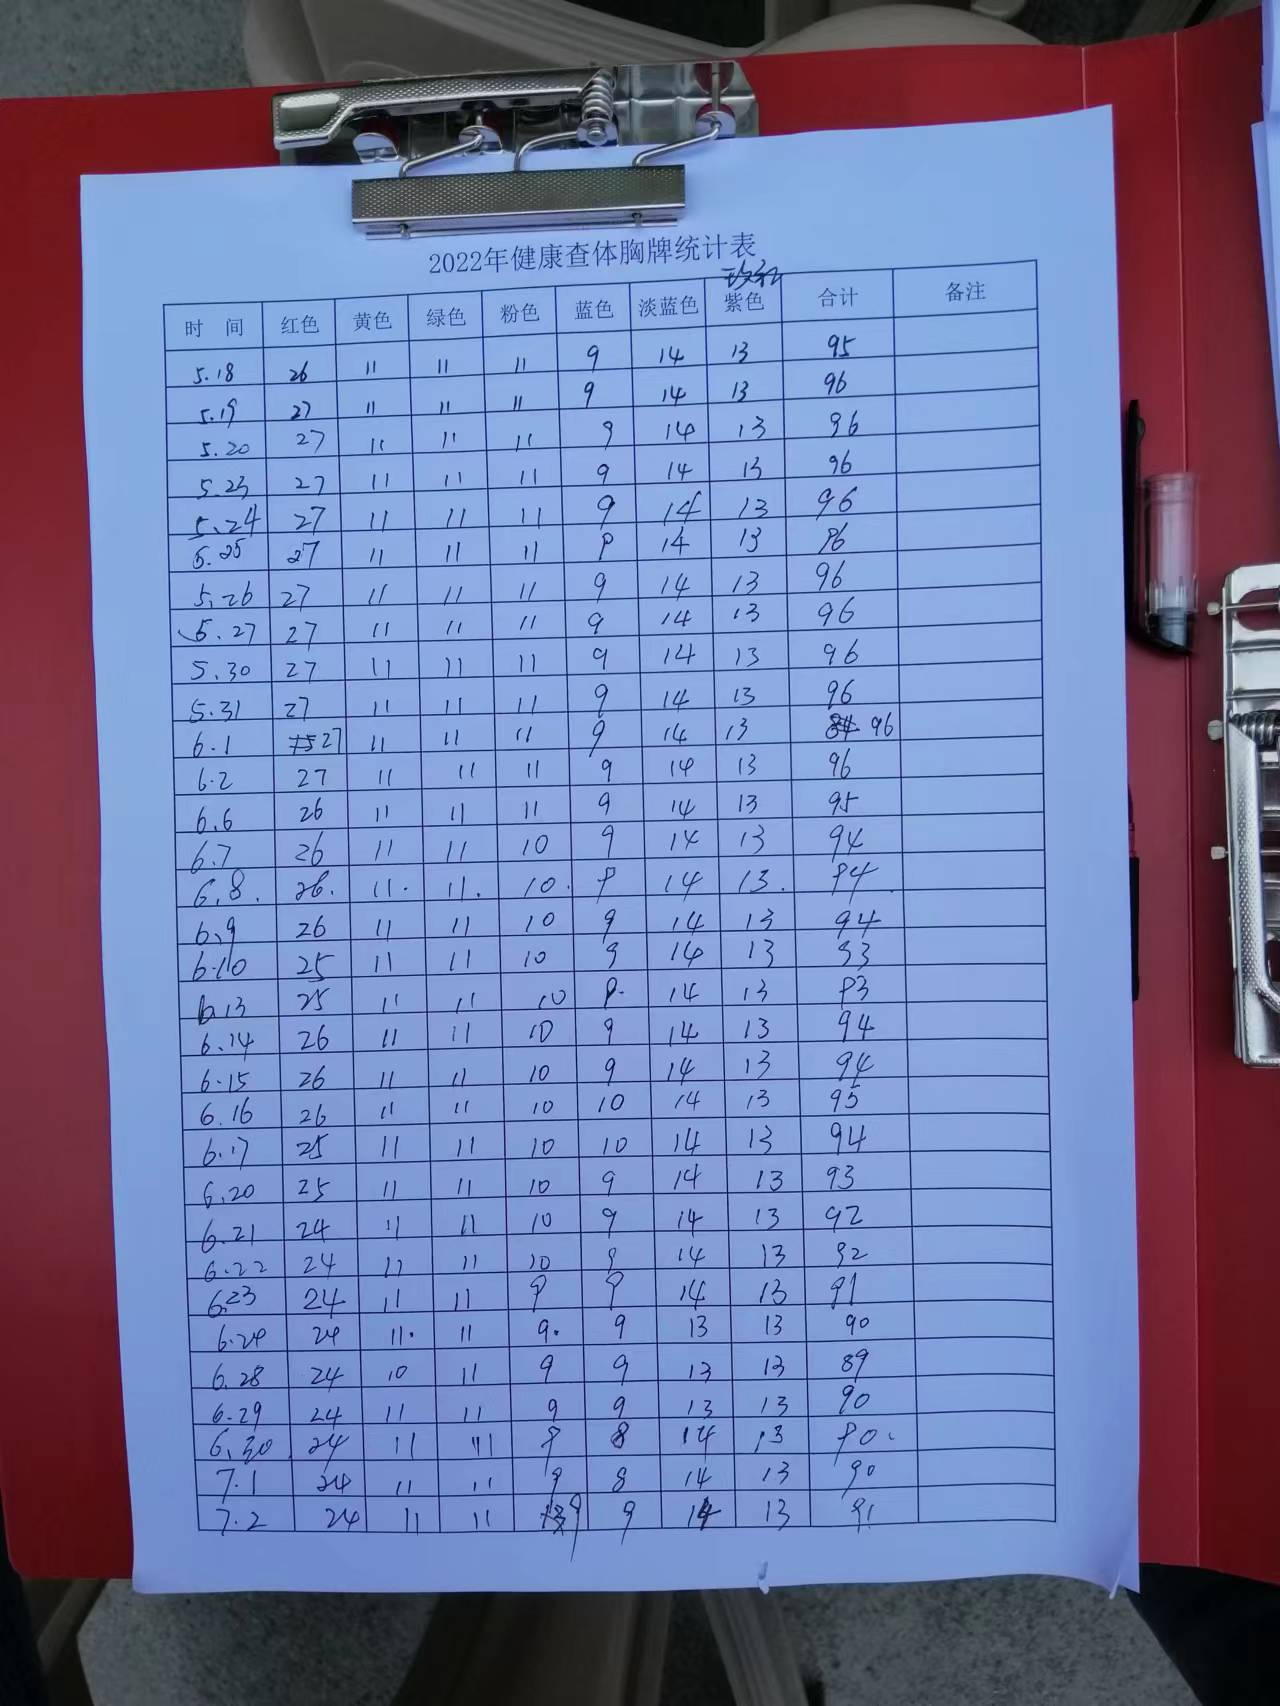 2022年健康查体胸牌统计表
玫红
时 间 红色 黄色 绿色 粉色 蓝色 淡蓝色 紫色 合计 备注
5.18 26 11 11 11 9 14 13 95
5.19 27 11 11 11 9 14 13 96
5.20 27 11 11 11 9 14 13 96
5.23 27 11 11 11 9 14 13 96
5.24 27 11 11 11 9 14 13 96
5.25 27 11 11 11 9 14 13 96
5.26 27 11 11 11 9 14 13 96
5.27 27 11 11 11 9 14 13 96
5.30 27 11 11 11 9 14 13 96
5.31 27 11 11 11 9 14 13 96
6.1 27 11 11 11 9 14 13 96
6.2 27 11 11 11 9 14 13 96
6.6 26 11 11 11 9 14 13 95
6.7 26 11 11 10 9 14 13 94
6.8. 26. 11. 11. 10. 9 14 13. 94.
6.9 26 11 11 10 9 14 13 94
6.10 25 11 11 10 9 14 13 93
6.13 25 11 11 10 9. 14 13 93
6.14 26 11 11 10 9 14 13 94
6.15 26 11 11 10 9 14 13 94
6.16 26 11 11 10 10 14 13 95
6.17 25 11 11 10 10 14 13 94
6.20 25 11 11 10 9 14 13 93
6.21 24 11 11 10 9 14 13 92
6.22 24 11 11 10 9 14 13 92
6.23 24 11 11 9 9 14 13 91
6.24 24 11. 11 9. 9 13 13 90
6.28 24 10 11 9 9 13 13 89
6.29 24 11 11 9 9 13 13 90
6.30 24 11 11 9 8 14 13 90.
7.1 24 11 11 9 8 14 13 90
7.2 24 11 11 9 9 14 13 91